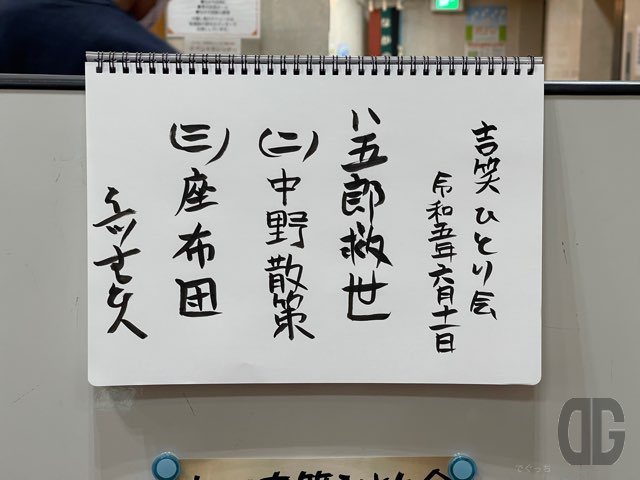 吉笑ひとり会
令和五年六月十一日
八五郎救世
(二)中野散策
(三)座布団
DG
でぐっち